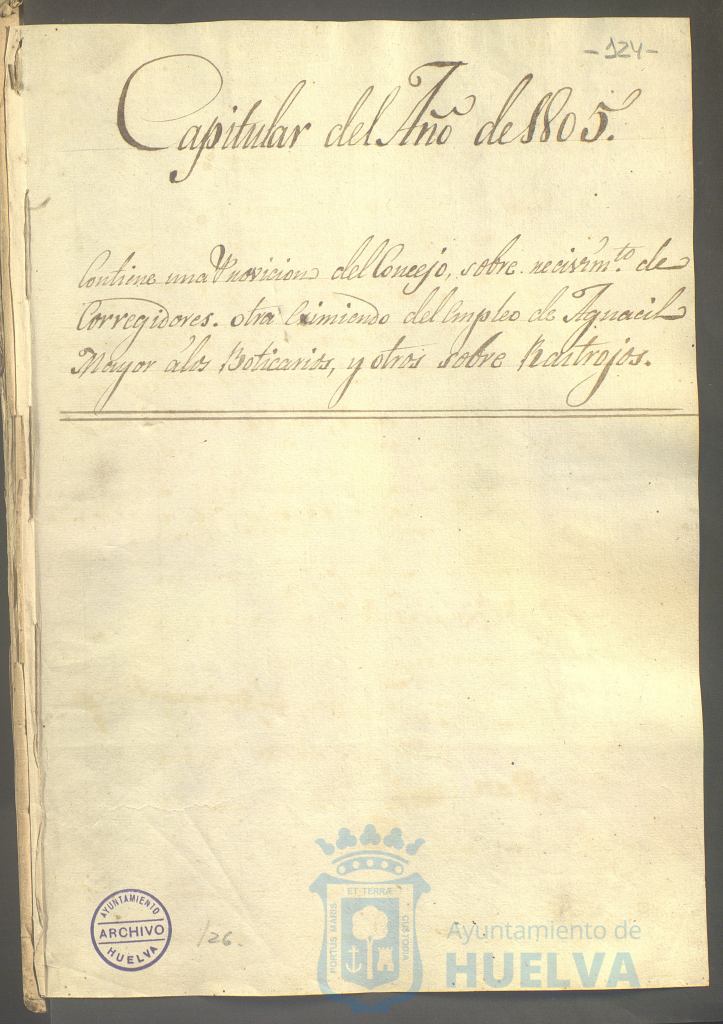 - 124 -
Capitular del Año de 1805.
Contiene una Provicion del Concejo, sobre recivim.to de
Corregidores. otra Eximiendo del Empleo de Aguacil
Mayor álos Boticarios, y otros sobre Rastrojos.
AYUNTAMIENTO
ARCHIVO
HUELVA
126.
PORTUS MARIS
ET TERRÆ
CUSTODIA
Ayuntamiento de
HUELVA